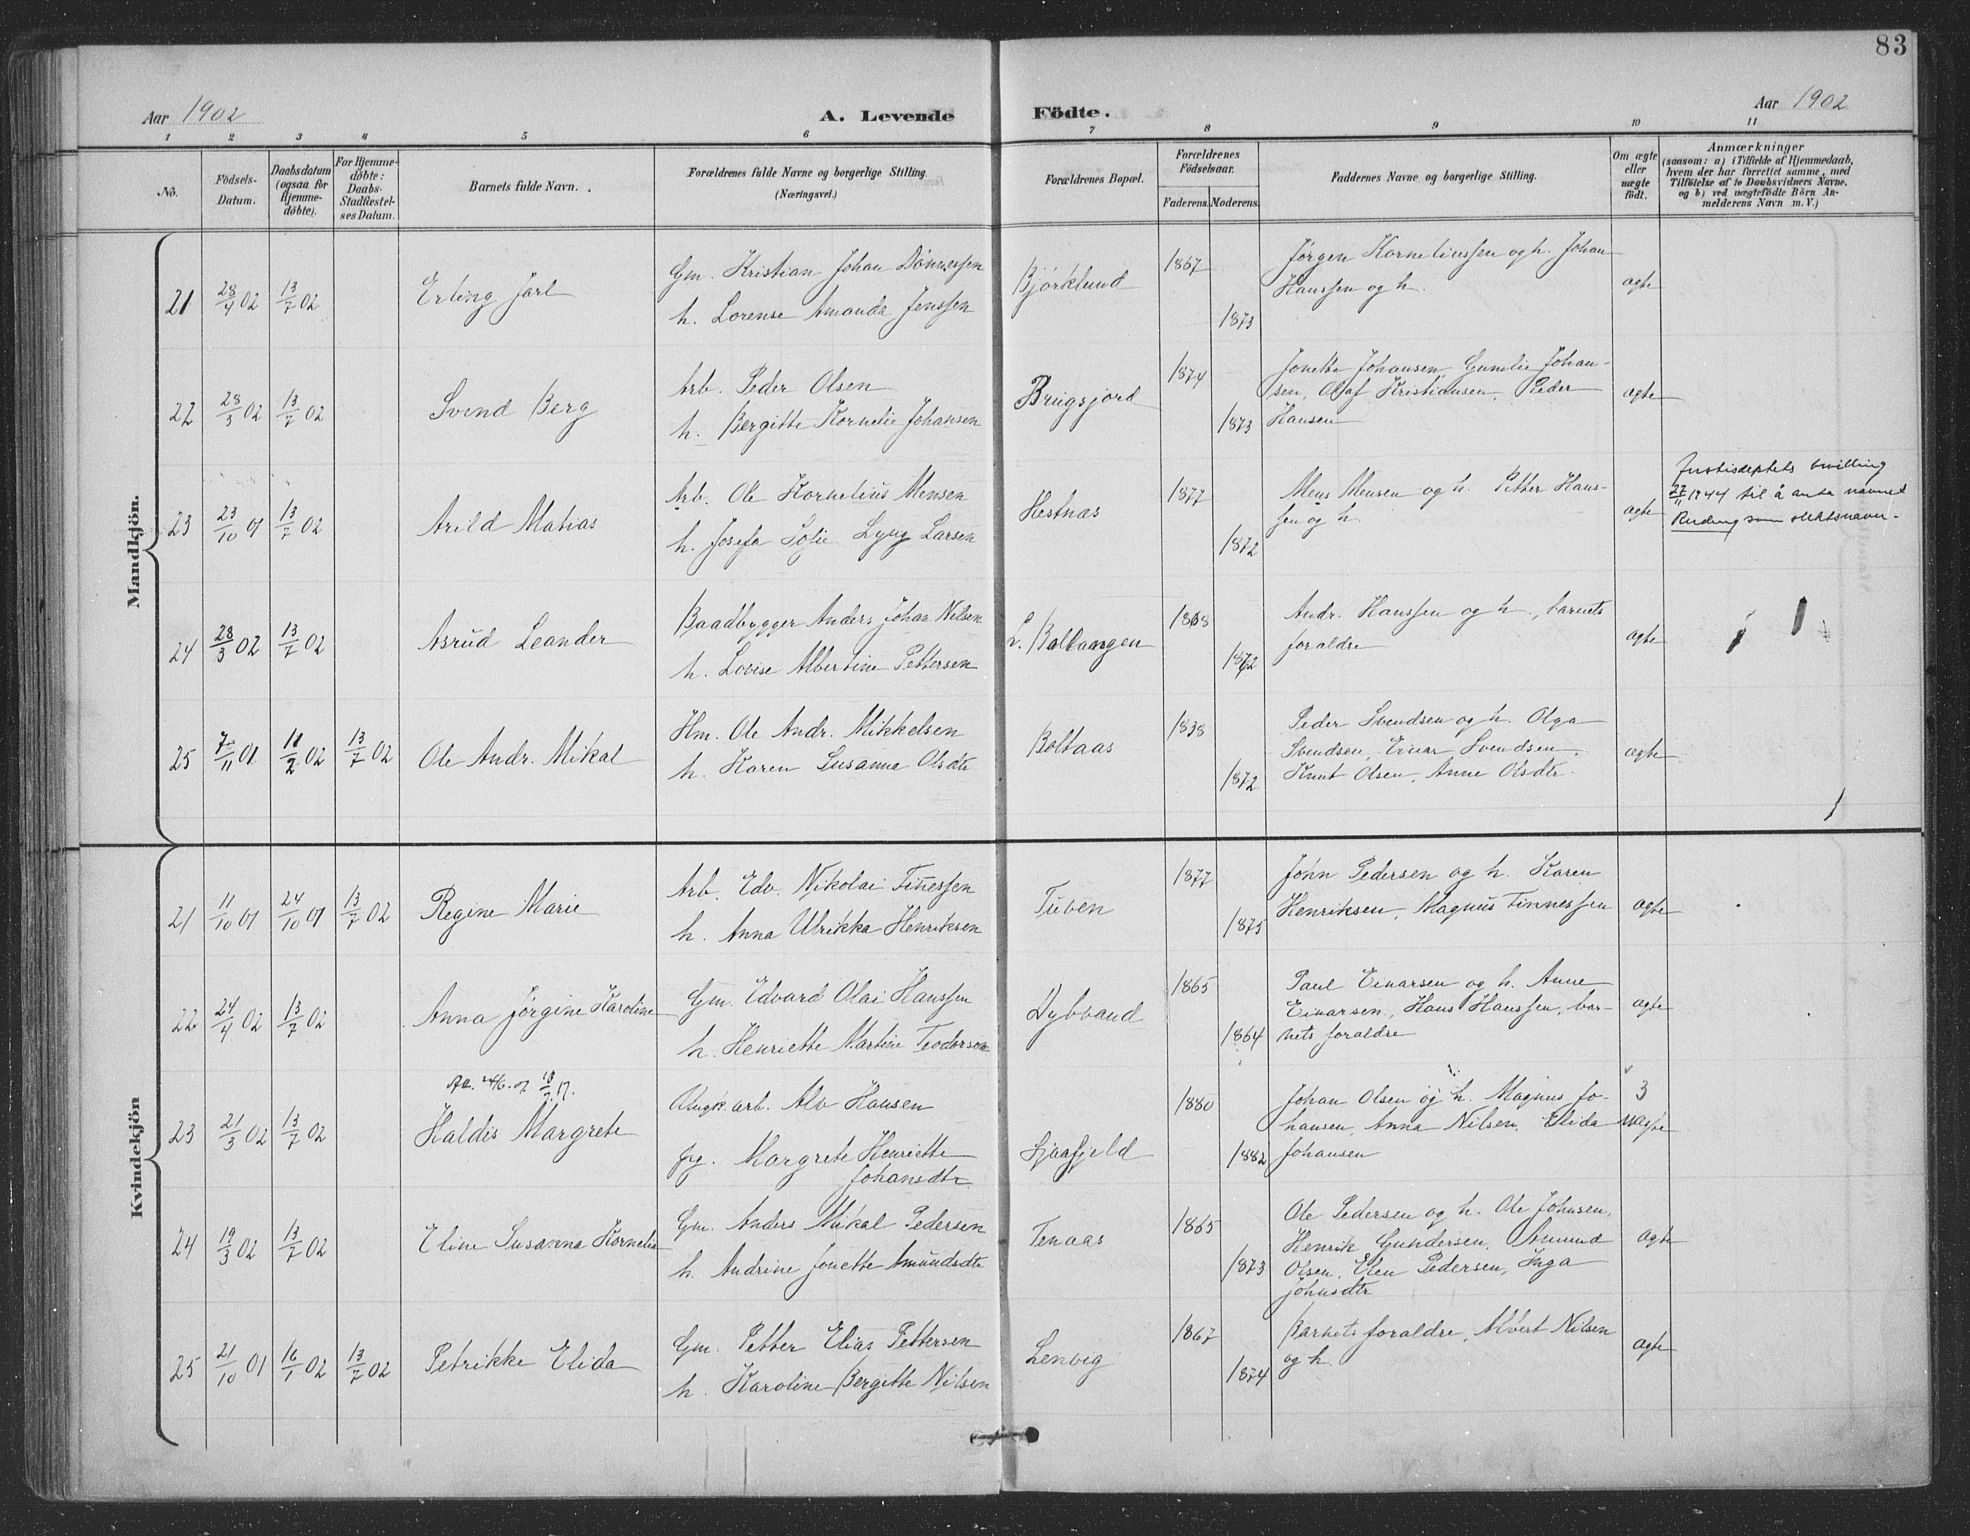 83
Aar 1902
A. Levende Födte.
Aar 1902
1 2 3 4 5 6 7 8 9 10 11
No.
Födsels-
Datum.
Daabsdatum
(ogsaa for
Hjemme-
döbte).
For Hjemme-
döbte:
Daabs-
Stadfæstel-
ses Datum.
Barnets fulde Navn.
Forældrenes fulde Navne og borgerlige Stilling.
(Næringsvei.)
Forældrenes Bopæl.
Forældrenes
Födselsaar.
Faderens. Moderens.
Faddernes Navne og borgerlige Stilling.
Om ægte
eller
uægte
födt.
Anmærkninger
(saasom: a) i Tilfælde af Hjemmedaab,
hvem der har forrettet samme, med
Tilföielse af to Daabsvidners Navne,
og b) ved uægtefödte Börn An-
melderens Navn m. V.)
Mandkjön.
21 28/4 02 13/7 02 Erling Jarl
Gm. Kristian Johan Dönnessen
h. Lorense Amanda Jenssen
Bjørklund 1867 1873
Jørgen Korneliussen og h. Johan
Hanssen og h.
ægte
22 28/3 02 13/7 02 Svend Berg
Arb. Peder Olsen
h. Bergitte Kornelie Johansen
Brugsjord 1874 1873
Jonette Johansen, Gunelie Johan-
sen, Olaf Kristiansen, Peder
Hansen
ægte
23 23/10 01 13/7 02 Arild Matias
Arb. Ole Kornelius Mensen
h. Josefa Sofie Lyng Larsen
Hestnæs 1877 1872
Mens Mensen og h. Petter Hans-
sen og h.
ægte
Justisdeptets bevilling
22/11 1944 til å anta navnet
Ruding som slektsnavn.
24 28/3 02 13/7 02 Asrud Leander
Baadbygger Anders Johan Nilsen
h. Lovise Albertine Pettersen
L. Ballangen 1868 1872
Andr. Hanssen og h., barnets
foraldre
ægte
25 7/11 01 18/2 02 13/7 02 Ole Andr. Mikal
Hm. Ole Andr. Mikkelsen
h. Karen Susanna Olsdtr
Boltaas 1838 1872
Peder Svendsen og h. Olga
Svendsen, Einar Svendsen,
Knut Olsen, Anne Olsdtr.
ægte
Kvindekjön
21 11/10 01 24/10 01 13/7 02 Regine Marie
Arb. Edv. Nikolai Finessen
h. Anna Ulrikka Henriksen
Tuben 1877 1875
John Pedersen og h. Karen
Henriksen, Magnus Finnessen
ægte
22 24/4 02 13/7 02 Anna Jørgine Karoline
Gm. Edvard Olai Hanssen
h. Henriette Martine Teodorsen
Dybvand 1865 1864
Paul Einarsen og h. Anne
Einarsen, Hans Hanssen, bar-
nets foraldre
ægte
23 21/3 02 13/7 02 Haldis Margrete
Ungk. arb. Alv Hansen
pg. Margrete Henriette
Johansdtr.
Sjaafjeld 1880 1882
Johan Olsen og h. Magnus Jo-
hansen, Anna Nilsen, Elida
Johansen
3
uægte
24 19/3 02 13/7 02 Eline Susanna Kornelia
Gm. Anders Mikal Pedersen
h. Andrine Jonette Amundsdtr
Tenaas 1865 1873
Ole Pedersen og h. Ole Johnsen,
Henrik Gundersen, Amund
Olsen, Elen Pedersen, Inga
Johnsdtr
ægte
25 21/10 01 16/1 02 13/7 02 Petrikke Elida
Gm. Petter Elias Pettersen
h. Karoline Bergitte Nilsen
Lenvig 1867 1874
Barnets foraldre, Albert Nilsen
og h.
ægte